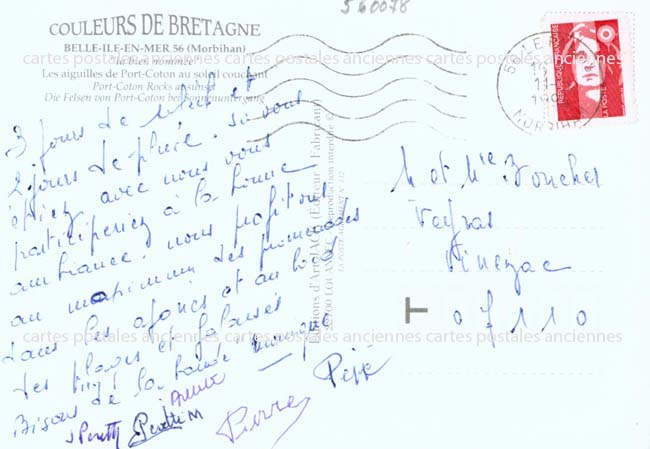 560078
COULEURS DE BRETAGNE
BELLE-ILE-EN-MER 56 (Morbihan)
"la bien nommée"
Les aiguilles de Port-Coton au soleil couchant
Port-Coton Rocks at sunset
Die Felsen von Port-Coton bei Sonnenuntergang
cartes postales anciennes cartes postales anciennes cartes postales anciennes
3 jours de soleil et
2 jours de pluie. Si vous
étiez avec nous vous
participeriez à la bonne
ambiance. nous profitons
au maximum des promenades
dans les ajoncs et au bord
des plages et falaises
Bisous de la bande
Pierre
Pépé
Editions d'Art JACK (Editeur - Fabricant)
reproduction interdite ©
RÉPUBLIQUE FRANÇAISE
LA POSTE
MORBIHAN
M et Mme Bouchet
Veyras
Vinezac
07110
cartes postales anciennes cartes postales anciennes cartes postales anciennes